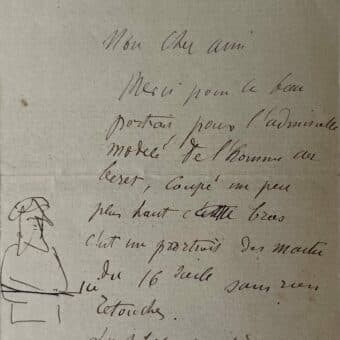 Mon cher ami
Merci pour ce beau
portrait pour l'admirable
modelé de l'homme au
beret, coupé un peu
plus haut cette bras
c'est un portrait des maitres
du 16 siecle sans rien
retoucher.
ici